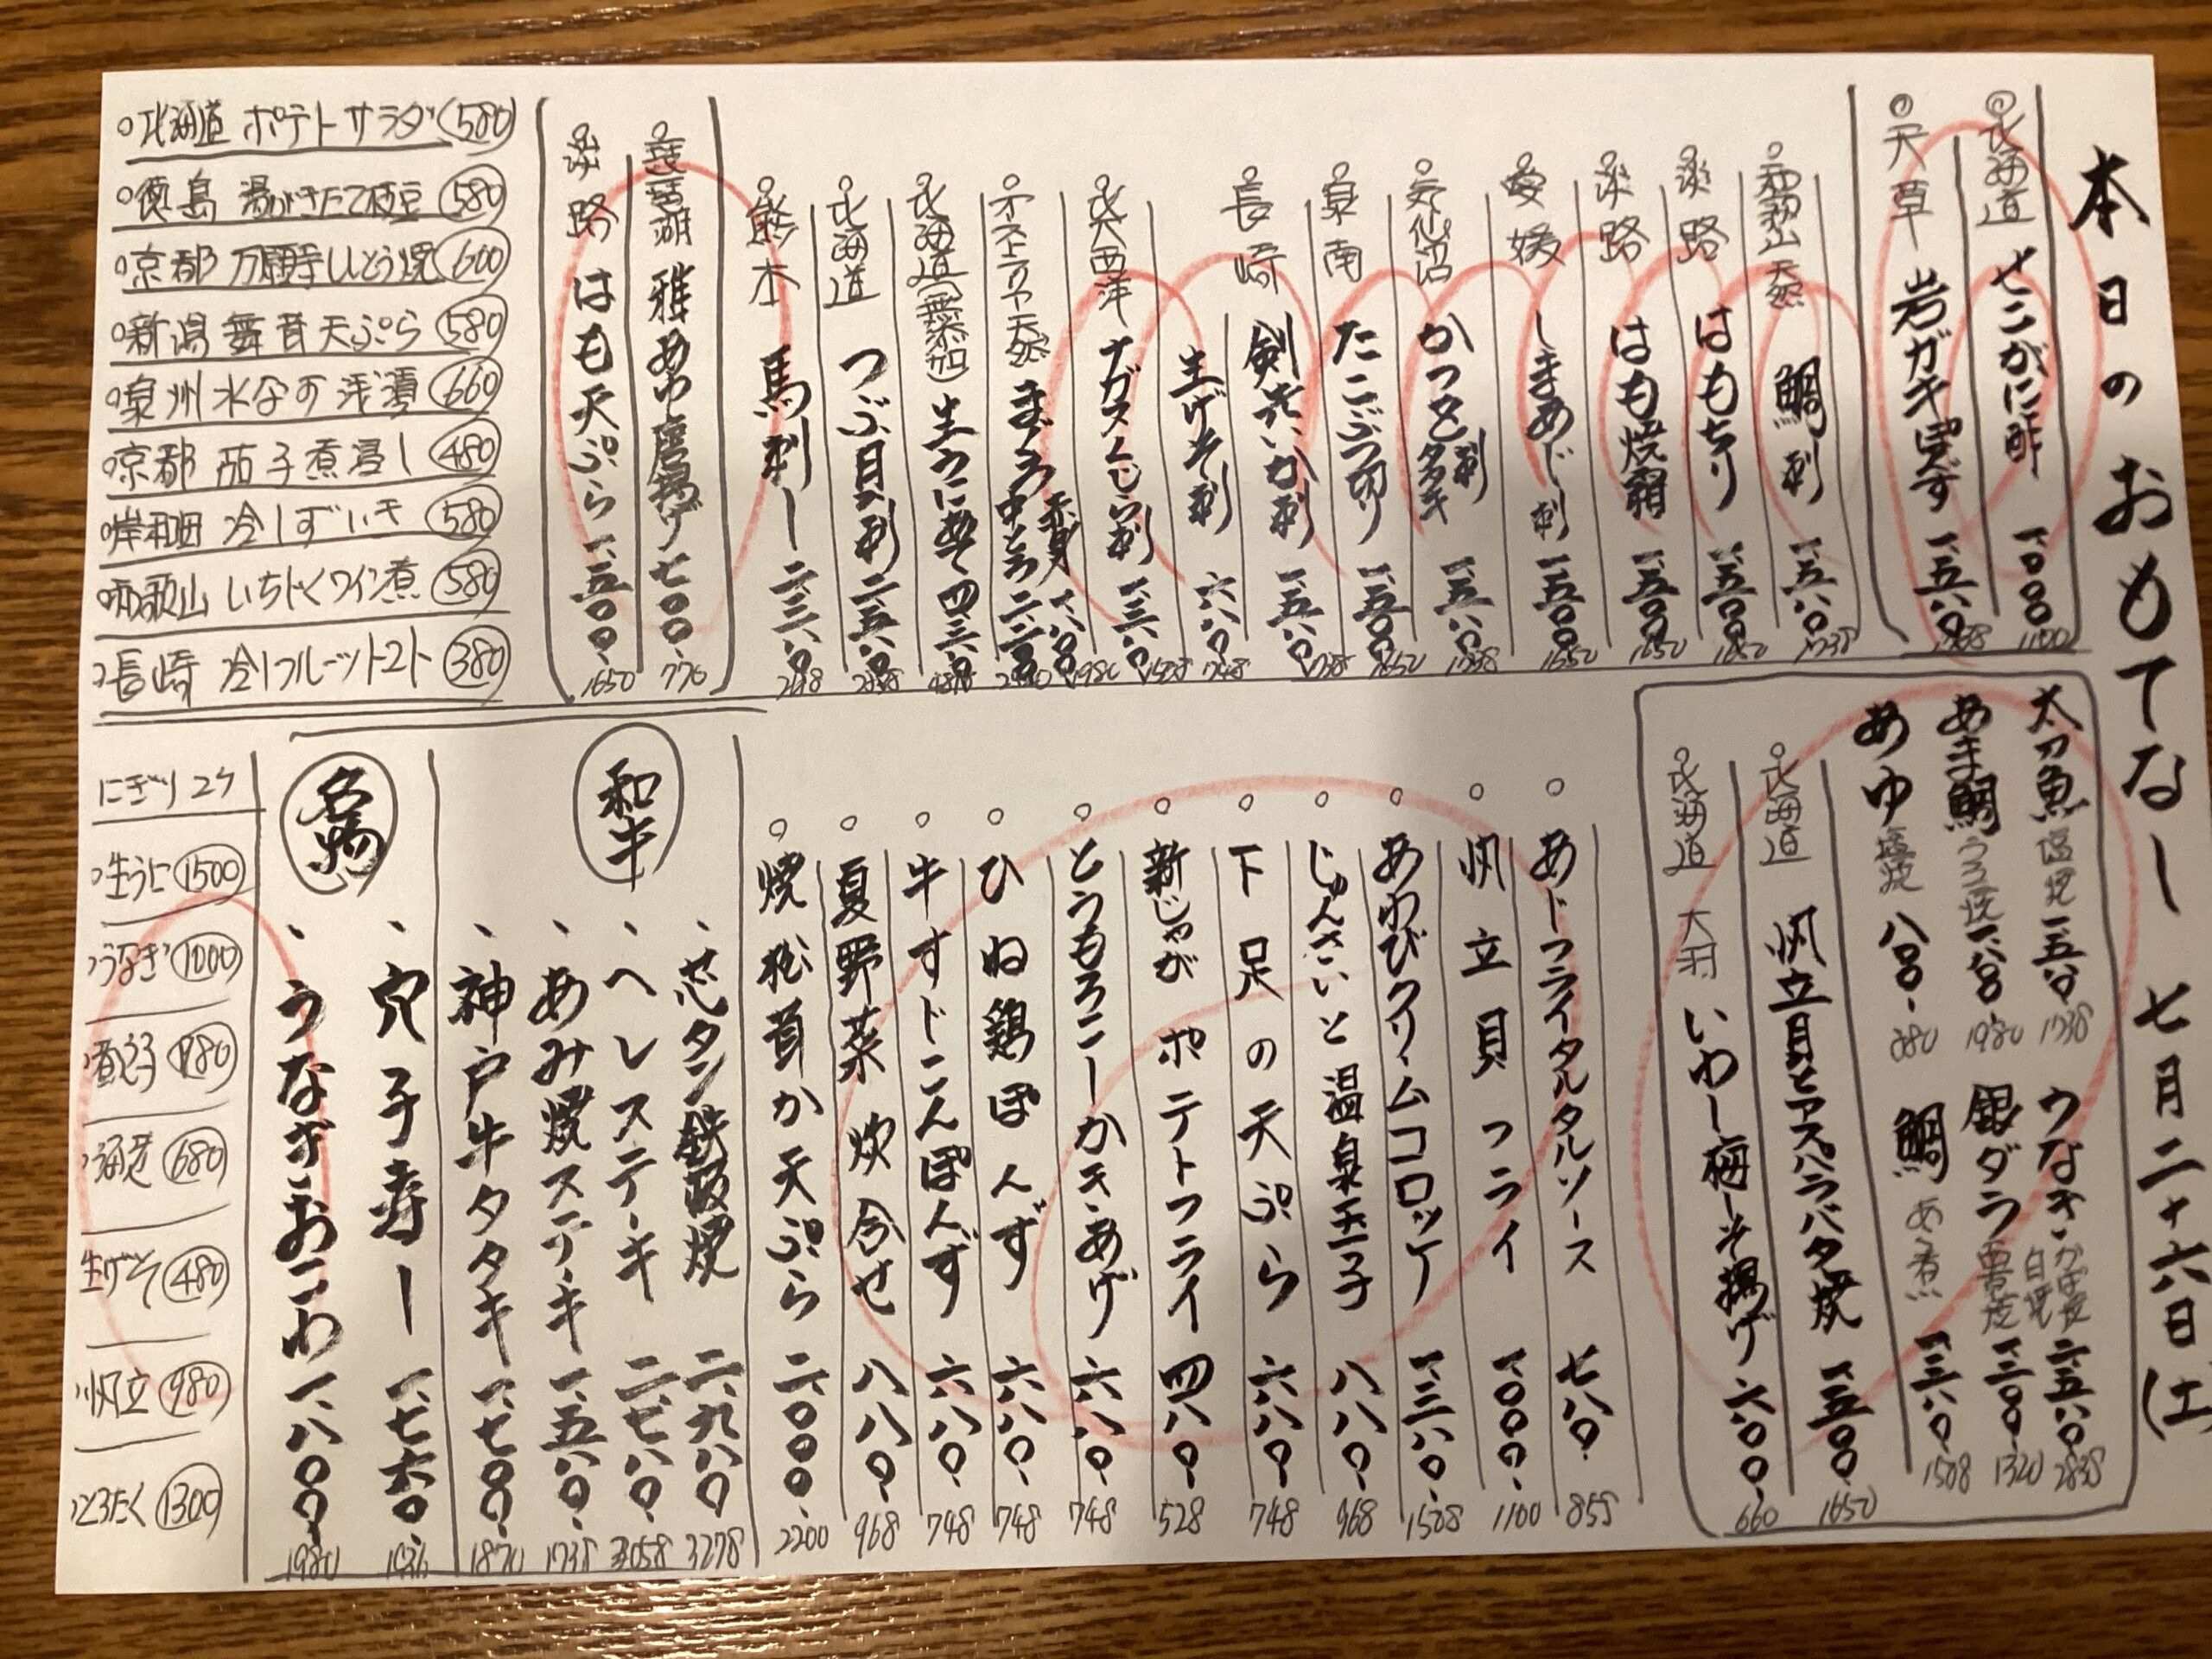 本日のおもてなし 七月二十六日(土
北海道 せこがに酢 一、000 1100
天草 岩ガキぽんず 一、五八0
和歌山 天然 鯛刺 一、五八0 1738
淡路 はもちり 一、五00 1650
淡路 はも焼霜 一、五00 1650
愛媛 しまあじ刺 一、五00 1650
気仙沼 かつを刺 タタキ 一、五八0 1738
泉南 たこぶつ切り 一、五00 1650
長崎 剣先いか刺 一、五八0 1738
生げそ刺 六八0 748
大西洋 ナガスくじら刺 一、三八0 1508
オーストラリア天然 まぐろ 赤身 一、八00 1980
中とろ
北海道(無添加) 生うに
北海道 つぶ貝刺 二、五八0
熊本 馬刺し 二、三八0
琵琶湖 稚あゆ唐揚げ 七00 770
淡路 はも天ぷら 一、五00 1650
北海道 ポテトサラダ 580
徳島 湯がきたて枝豆 580
京都 万願寺ししとう焼 600
新潟 舞茸天ぷら 580
泉州 水なす浅漬 660
京都 茄子煮浸し 480
岸和田 冷しずいき 580
和歌山 いちじくワイン煮 580
長崎 冷しフルーツトマト 380
太刀魚 塩焼 一、五八0 1738
あま鯛 うろこ焼 一、八00 1980
あゆ 塩焼 八00 880
うなぎ かば焼 白焼 二、五八0 2838
銀ダラ 西京焼 一、二00 1320
鯛 あら煮 一、三八0 1508
北海道 帆立貝とアスパラバタ焼 一、五00 1650
北海道 大羽 いわし梅しそ揚げ 六00 660
あじフライタルタルソース 七八0 858
帆立貝フライ 一、000 1100
あわびクリームコロッケ 一、三八0 1508
じゅんさいと温泉玉子 八八0 968
下足の天ぷら 六八0 748
新じゃがポテトフライ 四八0 528
とうもろこしかき揚げ 六八0 748
ひね鶏ぽんず 六八0 748
牛すじこんぽんず 六八0 748
夏野菜炊合せ 八八0 968
焼松茸か天ぷら 二、000 2200
和牛
芯タン鉄板焼 二、九八0 3278
ヘレステーキ 二、七八0 3058
あみ焼ステーキ 一、五八0 1738
神戸牛タタキ 一、七00 1870
名物
穴子寿し 一、七六0 1936
うなぎおこわ 一、八00 1980
にぎり2ケ
生うに 1500
うなぎ 1000
煮穴子
海老 680
生げそ 480
帆立 980
とろたく 1300